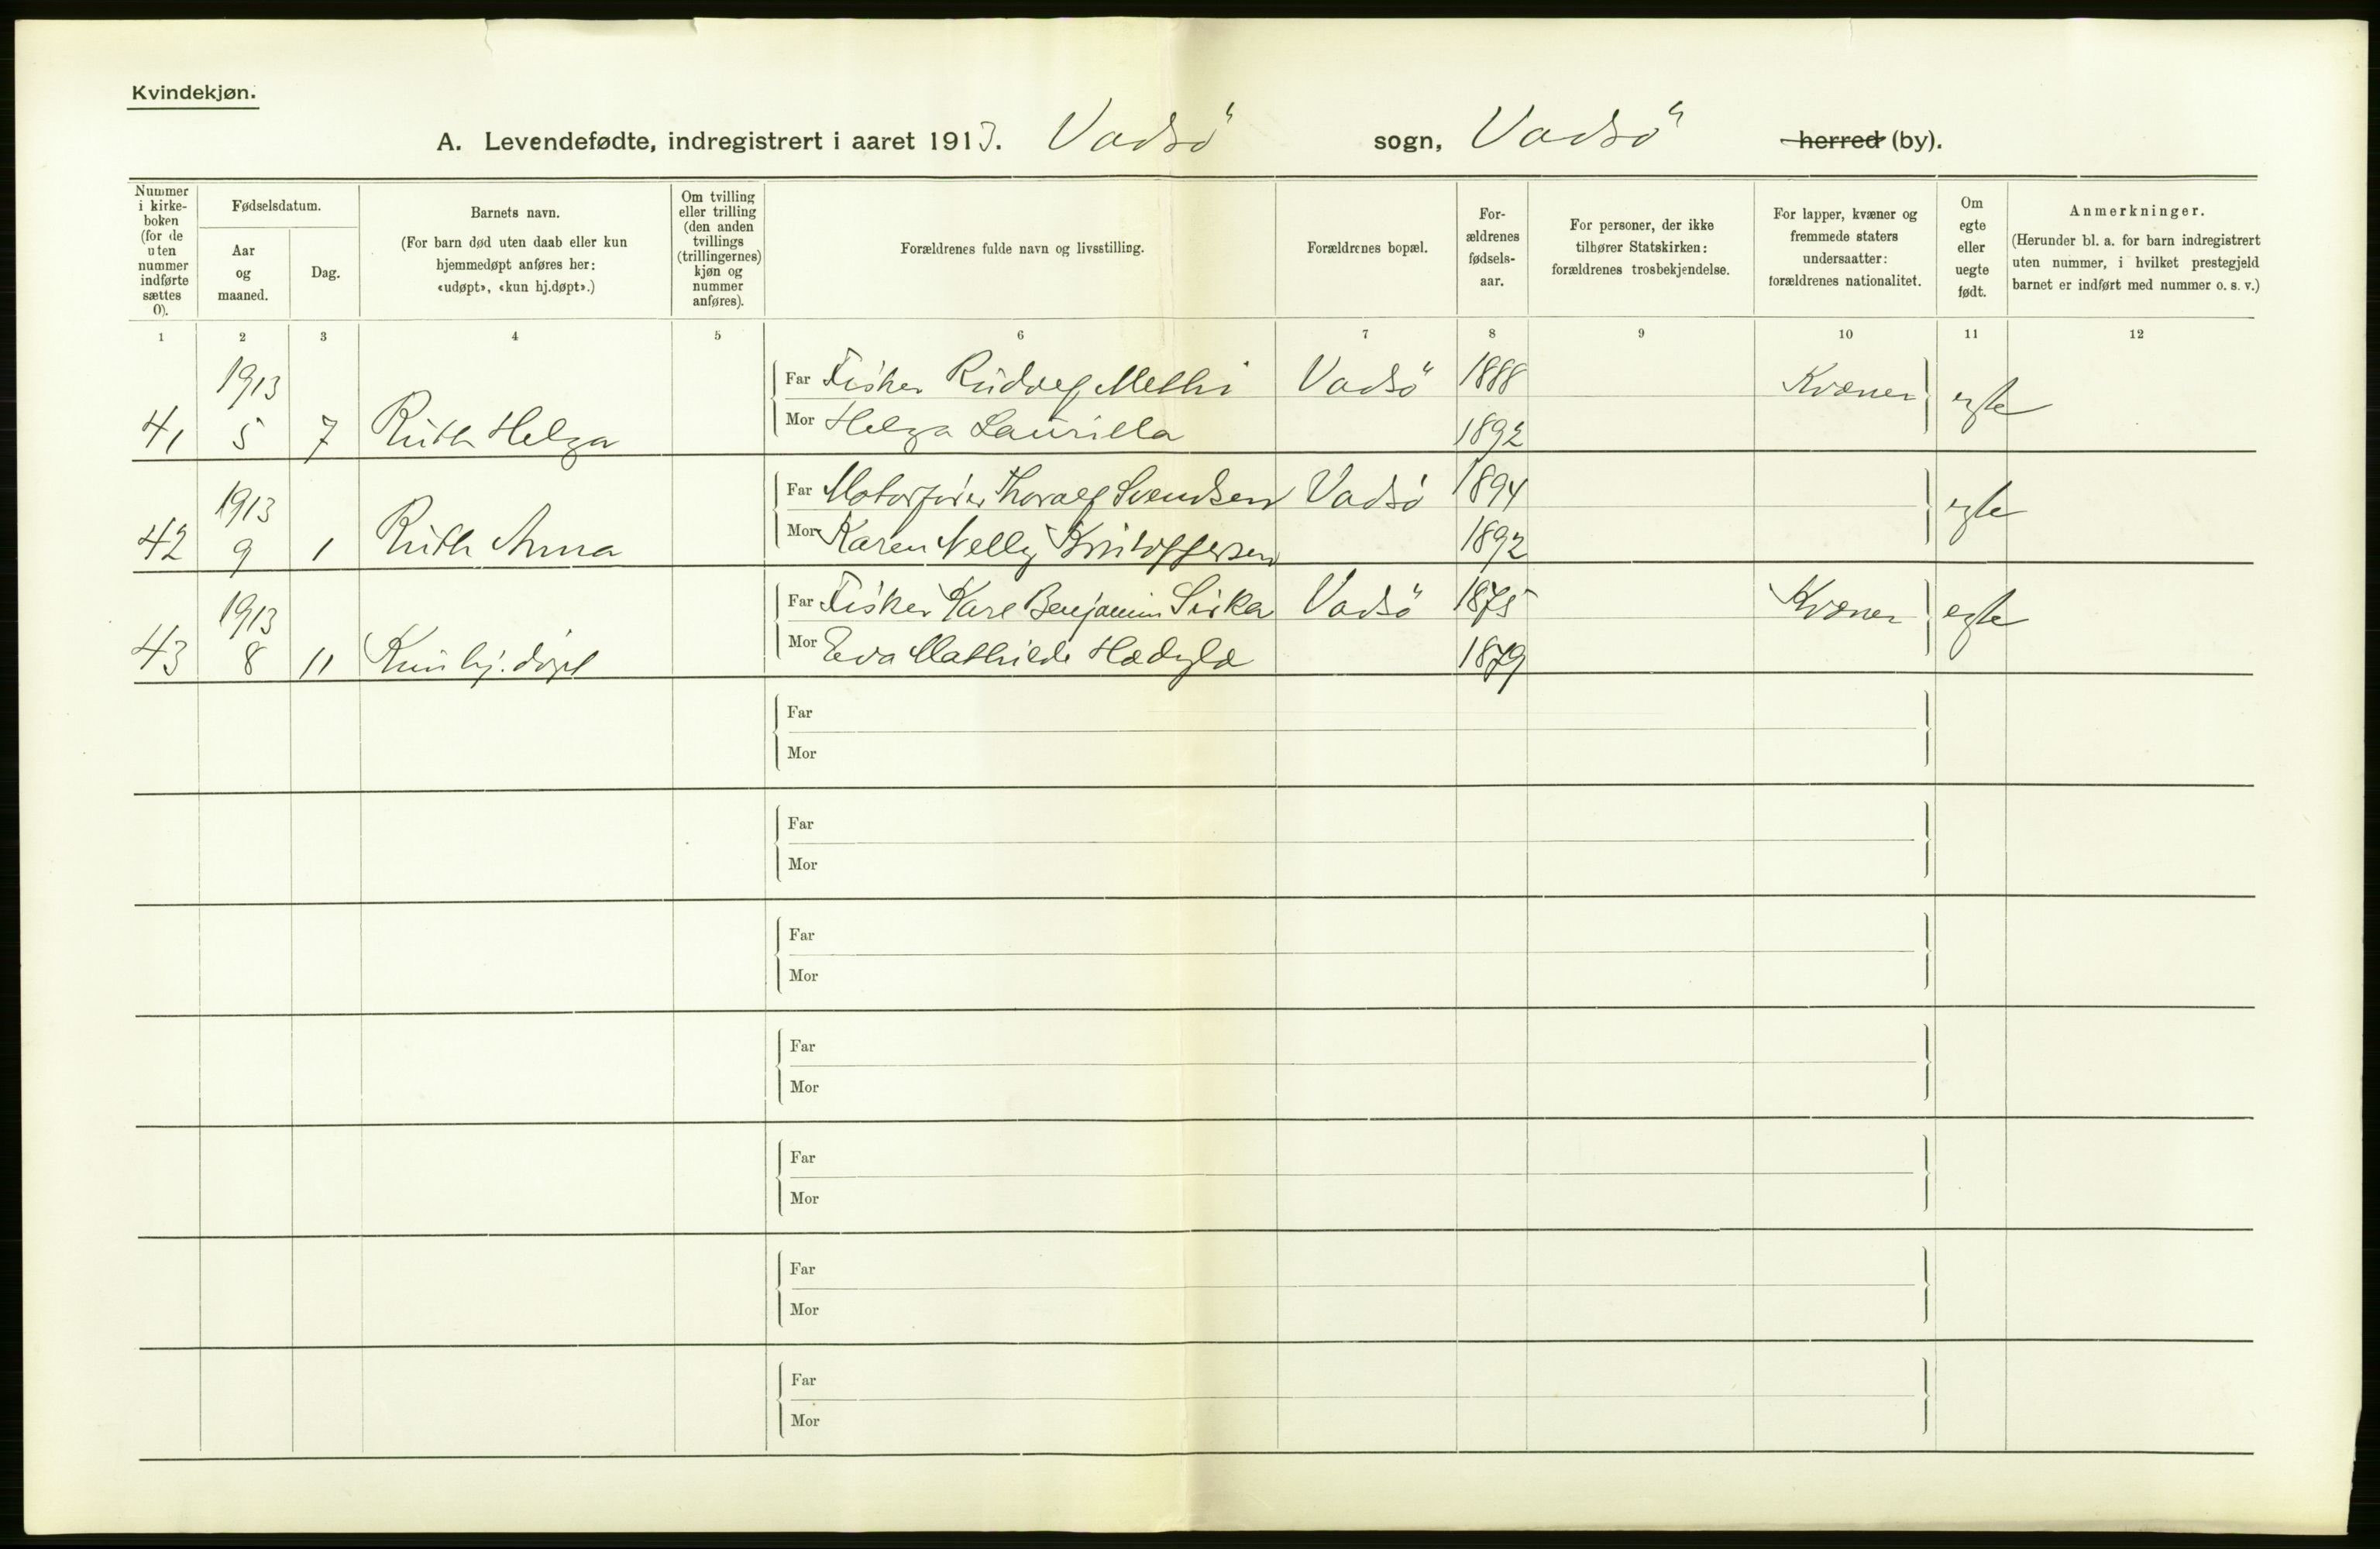 Kvindekjøn.
A. Levendefødte, indregistrert i aaret 1913. Vadsö sogn, Vadsö herred (by).
Nummer i kirke-boken (for de uten nummer indførte sættes 0).
Fødselsdatum.
Aar og maaned.
Dag.
Barnets navn.
(For barn død uten daab eller kun hjemmedøpt anføres her: «udøpt», «kun hj.døpt».)
Om tvilling eller trilling (den anden tvillings (trillingernes) kjøn og nummer anføres).
Forældrenes fulde navn og livsstilling.
Forældrenes bopæl.
For-ældrenes fødsels-aar.
For personer, der ikke tilhører Statskirken: forældrenes trosbekjendelse.
For lapper, kvæner og fremmede staters undersaatter: forældrenes nationalitet.
Om egte eller uegte født.
Anmerkninger.
(Herunder bl. a. for barn indregistrert uten nummer, i hvilket prestegjeld barnet er indført med nummer o. s. v.)
1 2 3 4 5 6 7 8 9 10 11 12
1913 Far Fisker Rudolf Vadsö 1888 Kvæner egte
41 5 7 Ruth Helga Mor Helga Laurilla 1892
1913 Far Motorfører Thoralf Svendsen Vadsö 1894 egte
42 9 1 Ruth Anna Mor Karen Nelly Kristoffersen 1892
1913 Far Fisker Karl Benjamin Sirka Vadsö 1875 Kvæner egte
43 8 11 Kun hj. døpt Mor Eva Mathilde 1879
Far
Mor
Far
Mor
Far
Mor
Far
Mor
Far
Mor
Far
Mor
Far
Mor